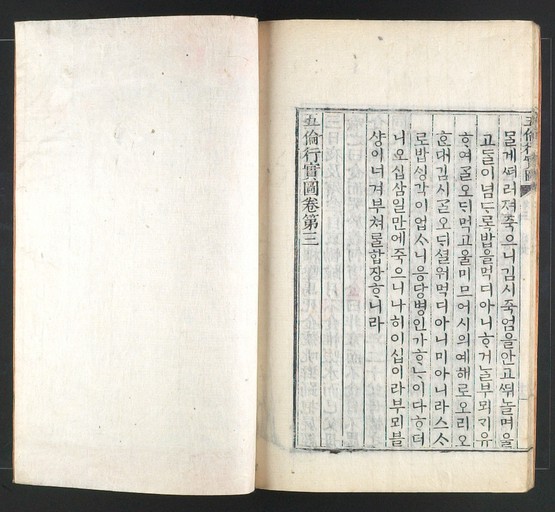 五倫行實圖
몰게ᄯᅥ러져죽으니김시죽엄을안고ᄲᅱ놀며울
고ᄃᆞᆯ이념도록밥을먹디아니ᄒᆞ거ᄂᆞᆯ부뫼기유
ᄒᆞ여ᄀᆞᆯ오ᄃᆡ먹고울미므어시의예해로오리오
ᄒᆞᆫ대김시ᄀᆞᆯ오ᄃᆡ셜워먹디아니미아니라스ᄉᆞ
로밥ᄉᆡᆼ각이업ᄉᆞ니응당병인가ᄒᆞᄂᆞ이다ᄒᆞ더
니오십삼일만에죽으니나히이십이라부뫼블
샹이너겨부쳐ᄅᆞᆯ합장ᄒᆞ니라
五倫行實圖卷第三